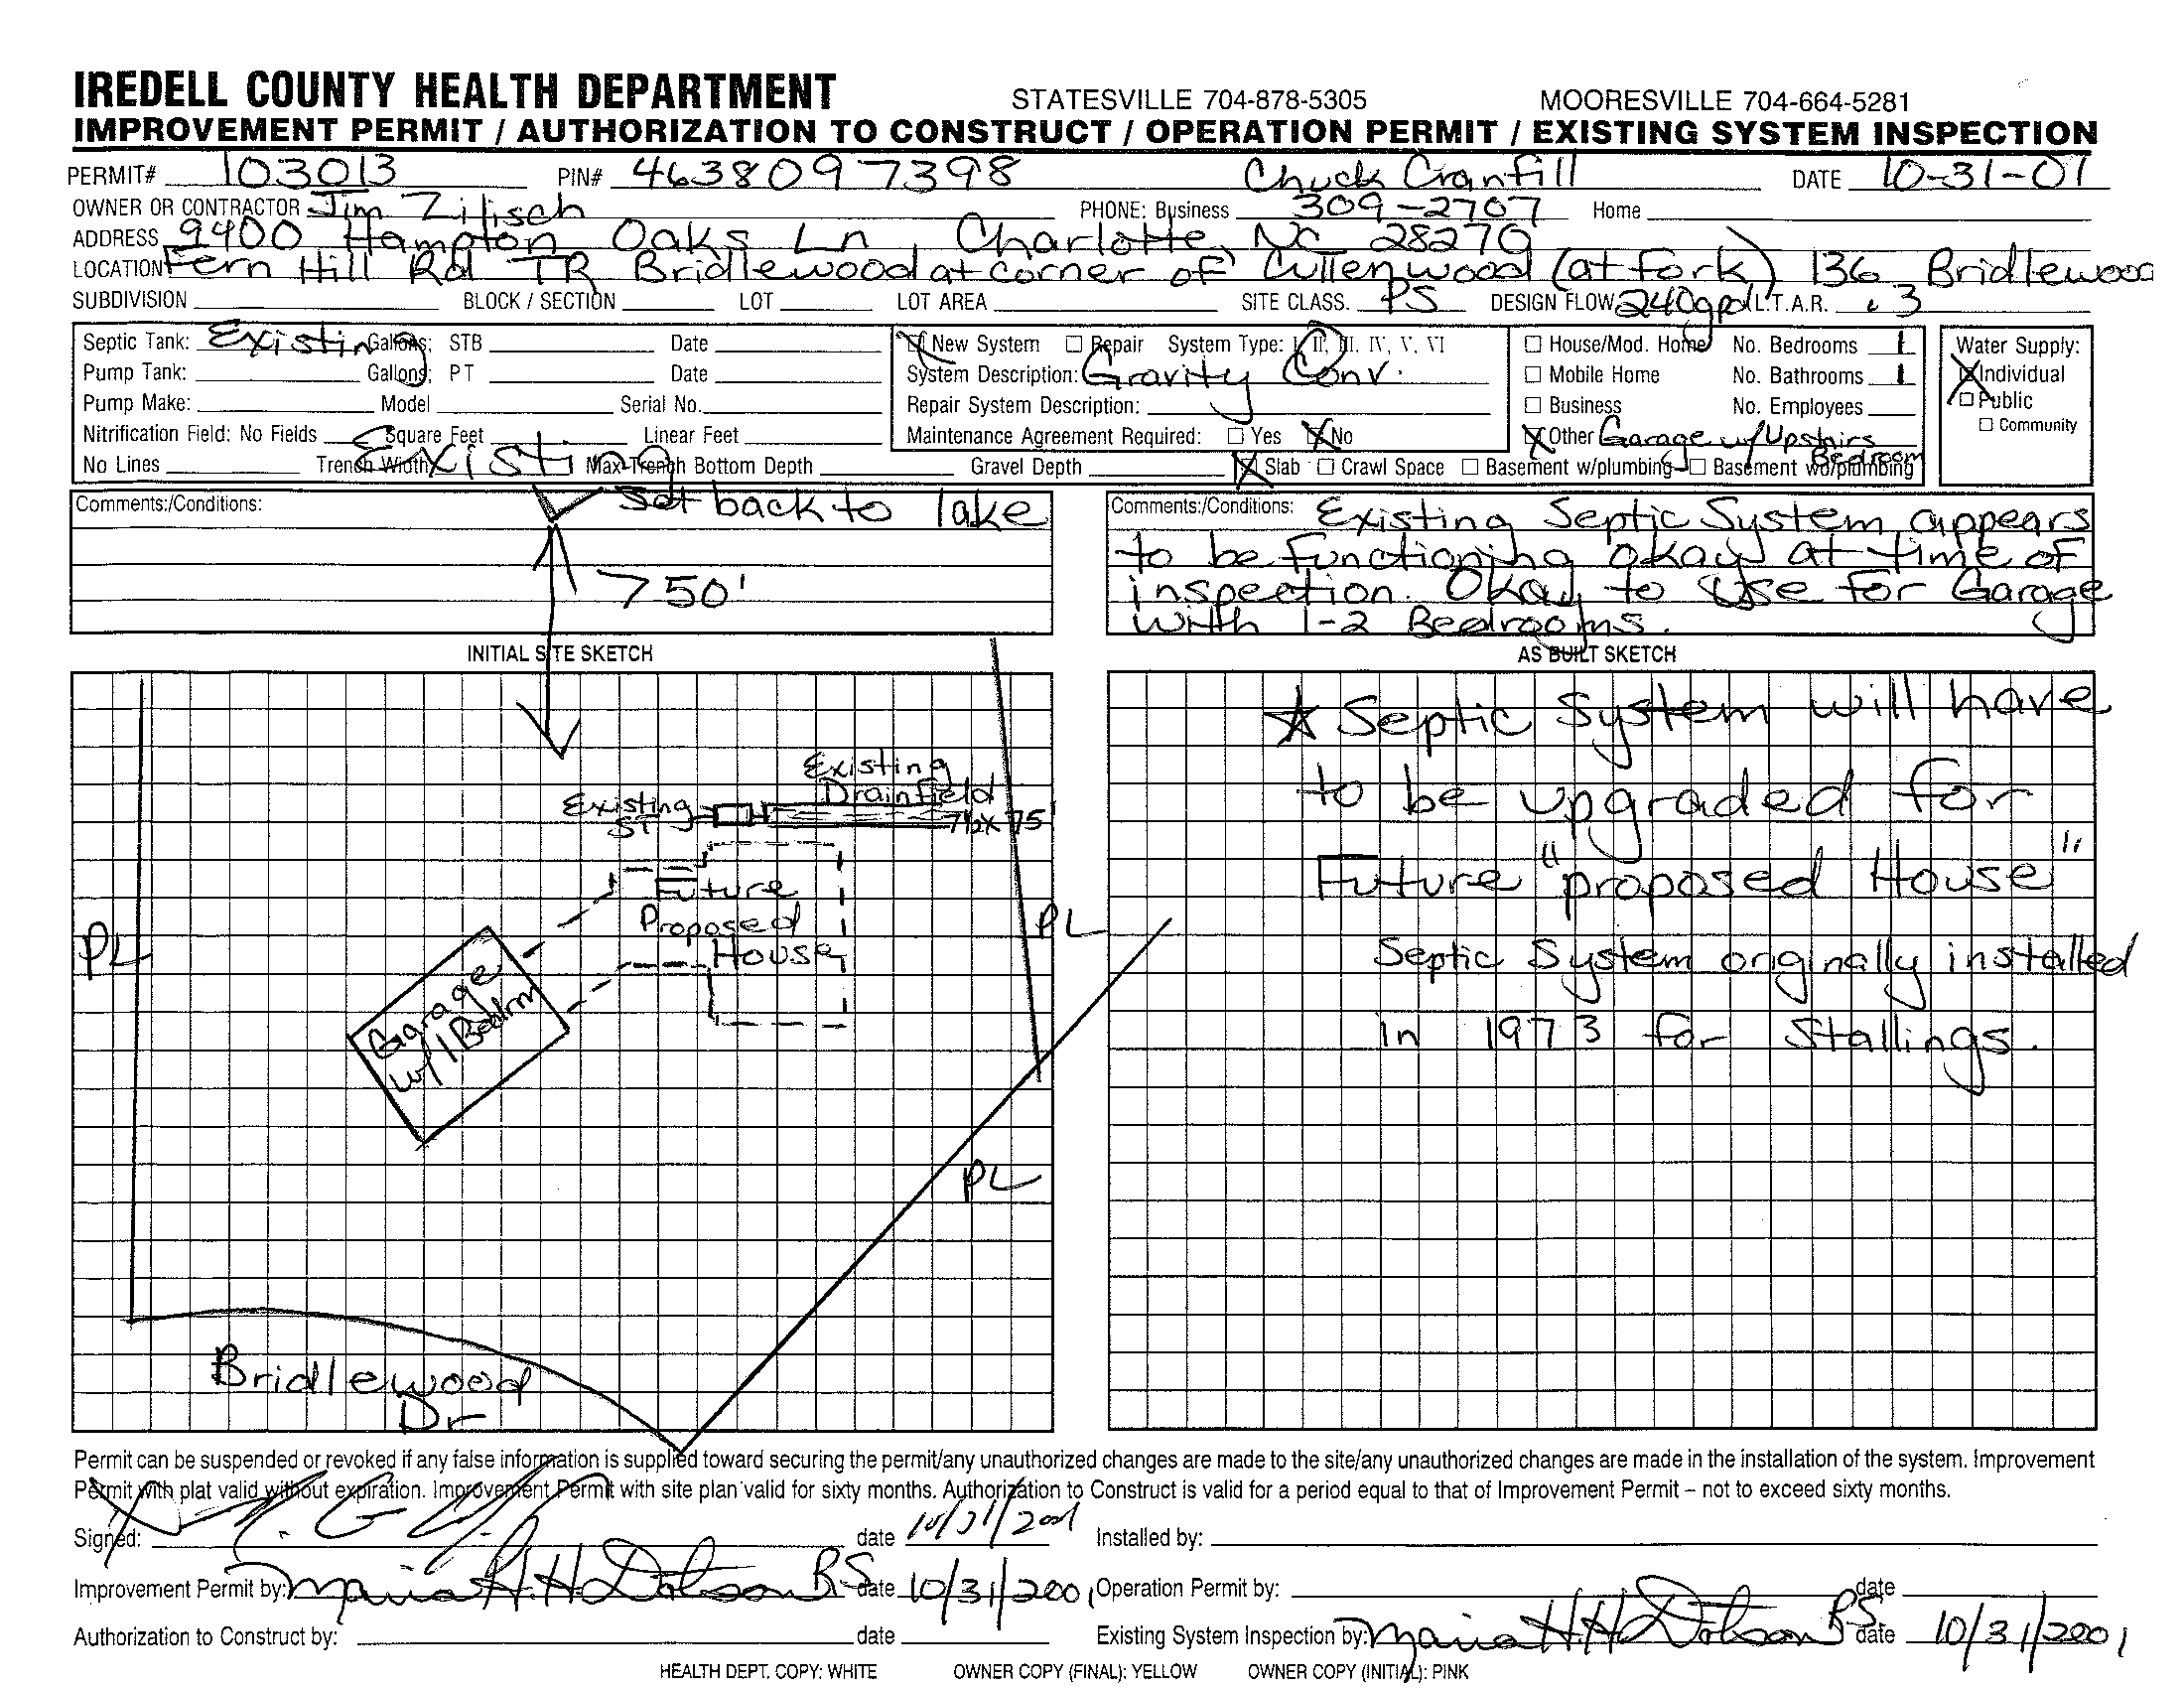 IREDELL COUNTY HEALTH DEPARTMENT STATESVILLE 704-878-5305 MOORESVILLE 704-664-5281
IMPROVEMENT PERMIT / AUTHORIZATION TO CONSTRUCT / OPERATION PERMIT / EXISTING SYSTEM INSPECTION
PERMIT# 103013 PIN# 4638097398 Chuck Cranfill DATE 10-31-01
OWNER OR CONTRACTOR Jim Zilisch PHONE: Business 309-2707 Home
ADDRESS 9400 Hampton Oaks Ln, Charlotte, NC 28270
LOCATION Fern Hill Rd TR Bridlewood at corner of Cullenwood (at fork) 136 Bridlewood
SUBDIVISION BLOCK / SECTION LOT LOT AREA SITE CLASS. PS DESIGN FLOW 240gpd L.T.A.R. .3
Septic Tank: Existing Gallons; STB Date New System Repair System Type: I, II, III, IV, V, VI House/Mod. Home No. Bedrooms 1 Water Supply:
Pump Tank: Gallons; PT Date System Description: Gravity Conv. Mobile Home No. Bathrooms 1 Individual
Pump Make: Model Serial No. Repair System Description: Business No. Employees Public
Nitrification Field: No Fields Square Feet Linear Feet Maintenance Agreement Required: Yes No Other Garage w/ Upstairs Bedroom Community
No Lines Trench Width Existing Max-Trench Bottom Depth Gravel Depth Slab Crawl Space Basement w/plumbing Basement wo/plumbing
Comments:/Conditions: Set back to lake
750'
Comments:/Conditions: Existing Septic System appears
to be functioning okay at time of
inspection. Okay to Use for Garage
with 1-2 Bedrooms.
INITIAL SITE SKETCH
Existing
Drainfield
Existing
ST
75'
Future
Proposed
House
PL
PL
Garage
w/1 Bedrm
PL
Bridlewood
Dr
AS BUILT SKETCH
☆ Septic System will have
to be upgraded for
Future "proposed House"
Septic System originally installed
in 1973 for Stallings.
Permit can be suspended or revoked if any false information is supplied toward securing the permit/any unauthorized changes are made to the site/any unauthorized changes are made in the installation of the system. Improvement
Permit with plat valid without expiration. Improvement Permit with site plan valid for sixty months. Authorization to Construct is valid for a period equal to that of Improvement Permit – not to exceed sixty months.
Signed: date 10/31/2001 Installed by:
Improvement Permit by: Maria H.H. Dotson RS date 10/31/2001 Operation Permit by: date
Authorization to Construct by: date Existing System Inspection by: Maria H.H. Dotson RS date 10/31/2001
HEALTH DEPT. COPY: WHITE OWNER COPY (FINAL): YELLOW OWNER COPY (INITIAL): PINK